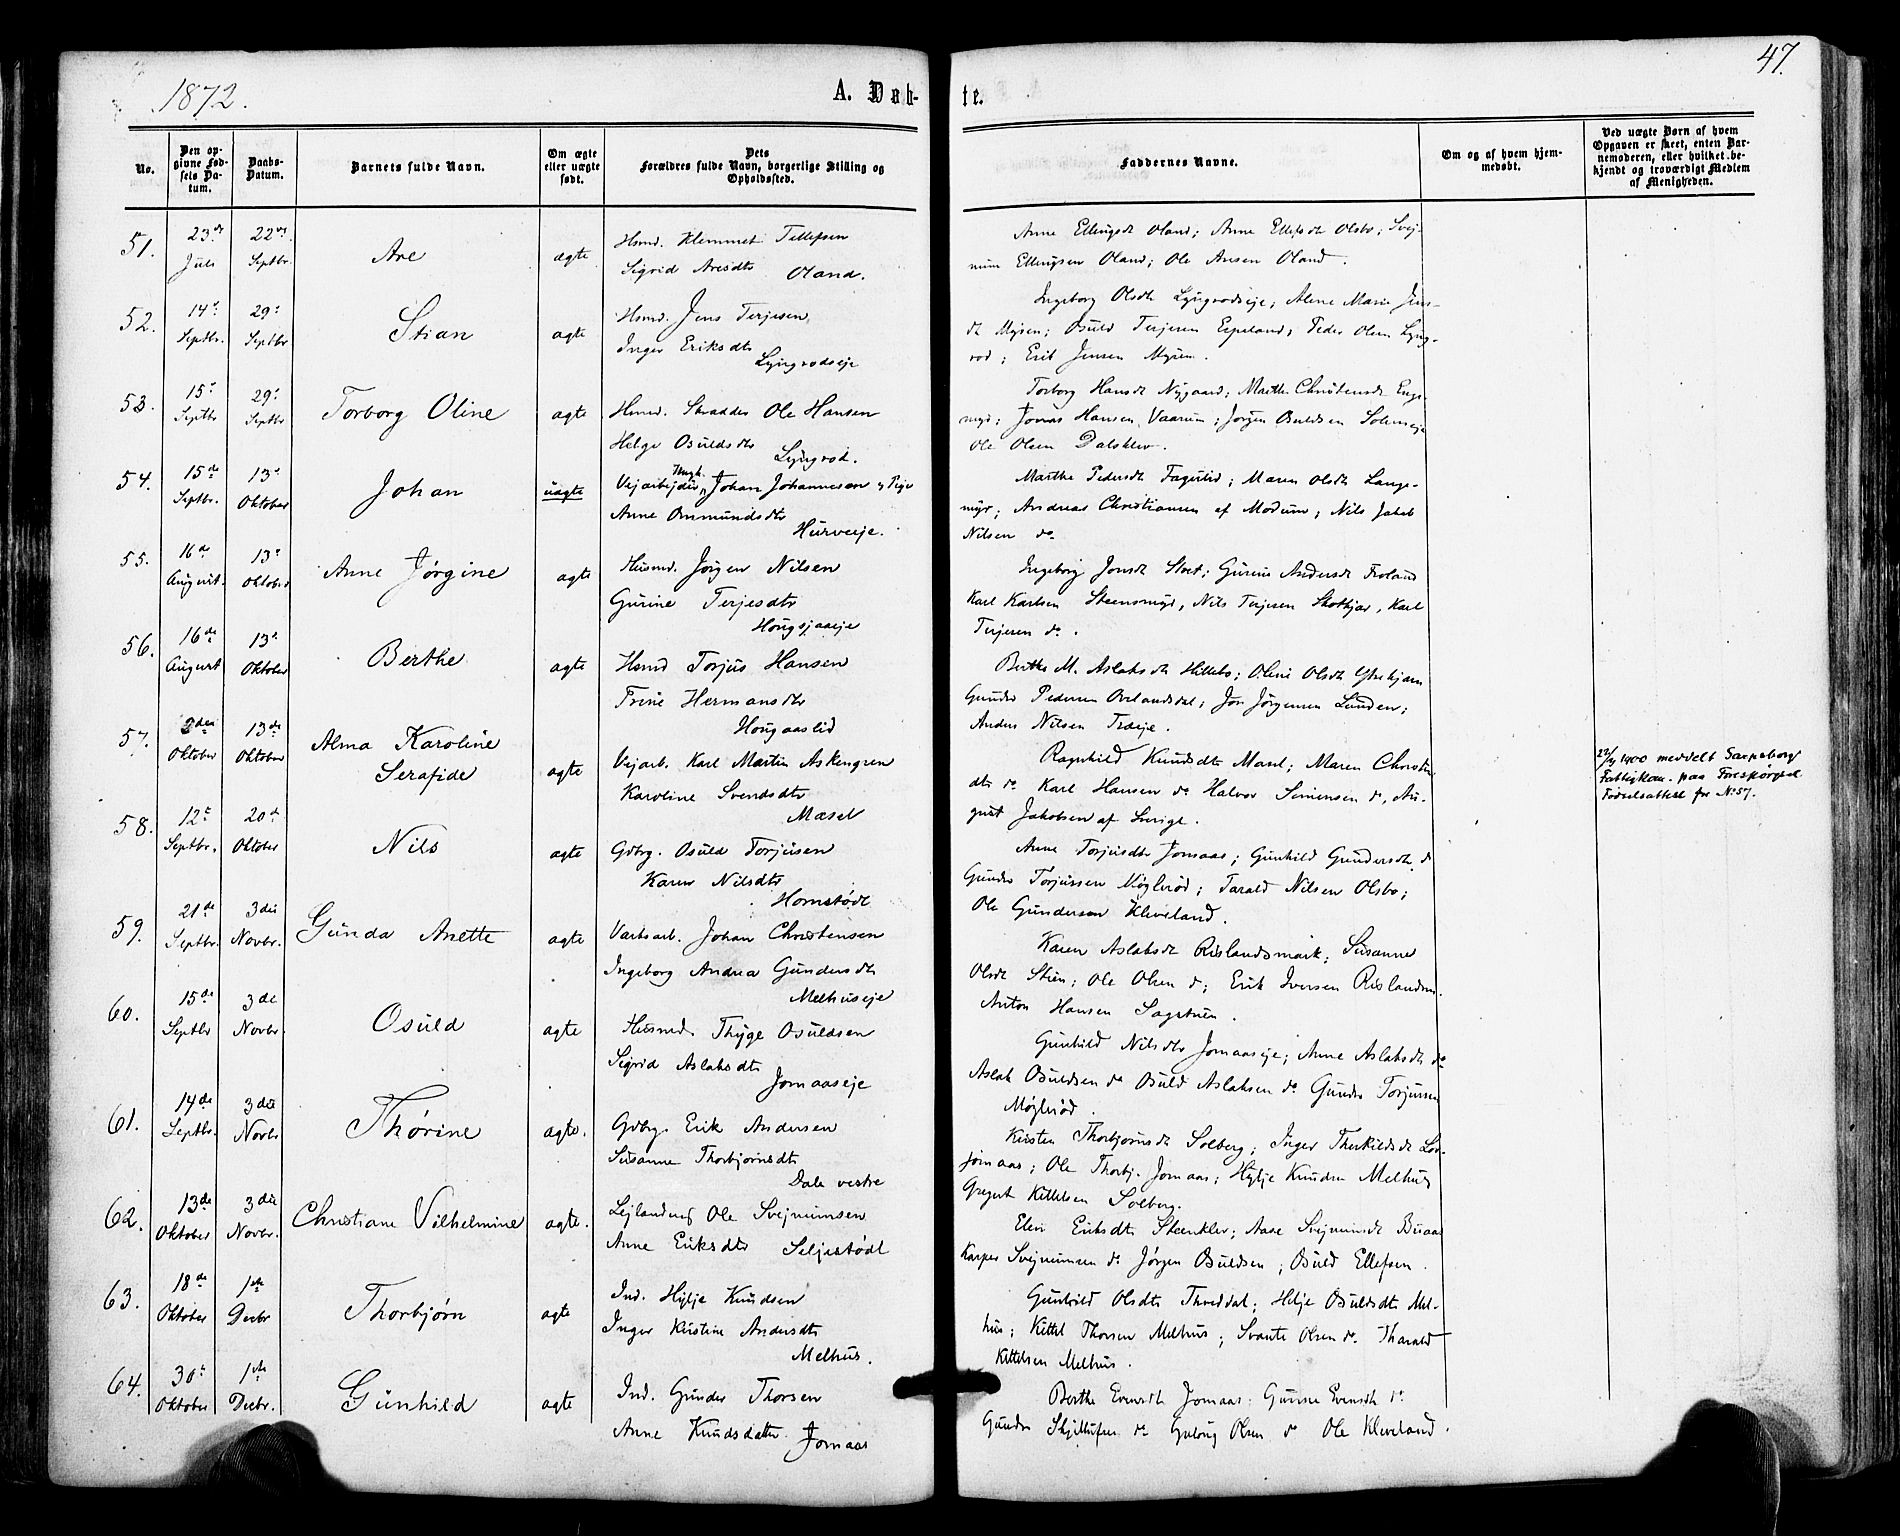 1872.
A. Døb-
te.
47.
No.
Den op-
givne Fød-
sels Da-
tum.
Daabs-
Datum.
Barnets fulde Navn.
Om ægte
eller uægte
født.
Dets
Forældres fulde Navn, borgerlige Stilling og
Opholdssted.
Faddernes Navne.
Om og af hvem hjem-
medøbt.
Ved uægte Børn af hvem
Opgaven er skeet, enten Bar-
nemoderen, eller hvilket be-
kjendt og troværdigt Medlem
af Menigheden.
51. 23de Juli 22de Septbr. Are ægte
Hsmd. Klemmet Tellefsen
Sigrid Aresdtr Oland.
Anne Ellingsdt Oland; Anne Ellefsdt Olsbo; Svej-
num Ellingsen Oland; Ole Aresen Oland.
52. 14de Septbr. 29de Septbr Stian ægte
Hsmd. Jens Terjesen,
Inger Eriksdtr Lyngrodseje
Ingeborg Olsdt Lyngrodseje; Alene Marie Jens-
dt Myren; Osuld Terjesen Espeland; Peder Olsen Lyng-
rod; Erik Jensen Myren.
53. 15de Septbr 29de Septbr Torborg Oline ægte
Hsmd. Skrædder Ole Hansen
Helge Osuldsdtr Lyngrod.
Torborg Hansdt Nygaard; Marthe Christensdt Enge-
myr; Jonas Hansen Vaarum; Jørgen Osuldsen Solemseje
Ole Olsen Dalsklev.
54. 15de Septbr. 13de Oktober Johan uægte
Vejarbejder Ungk. Johan Johannesen og Pige
Anne Ommundsdtr Hurveeje.
Marthe Pedersdt Fagerlid; Maren Olsdt Lange-
myr; Andreas Christiansen af Modum; Nils Jakob
Nilsen do
55. 16de August. 13de Oktober Anne Jørgine ægte
Husmd. Jørgen Nilsen
Gurine Terjesdtr
Hougsjaaeje
Ingeborg Jonsdt Stoet; Gurine Andersdt Froland
Karl Karlsen Steensmyr, Nils Terjesen , Karl
Terjesen do.
56. 16de August 13de Oktober Berthe ægte
Hsmd Torjus Hansen
Trine Hermansdtr
Hougaaslid
Berthe M. Aslaksdt Hillebo; Oline Olsdt
Gunder Pedersen Ovelandsdal; Jon Jørgensen Lunden;
Anders Nilsen Træeje.
57. 2den Oktober 13de Oktober Alma Karoline
Serafide ægte
Vejarb. Karl Martin Askengren
Karoline Svendsdtr
Mæsel
Ragnhild Knudsdt Mæsel; Maren Christens-
dt do Karl Hansen do Halvor Simensen do, Au-
gust Jakobsen af Sverige.
22/4 1900 meddelt Sarpsborg
Fattigkom. paa Forespørgsel
Fødselsattest for No 57.
58. 12te Septbr. 20de Oktober Nils ægte
Gdbrg. Osuld Torjusen
Karen Nilsdtr
Hornstødt
Anne Torjusdtr Jomaas; Gunhild Gundersdtr do
Gunder Torjussen Møglerød; Tarald Nilsen Olsbo;
Ole Gundersen Kleveland.
59. 21de Septbr. 3die Novbr. Gunda Anette ægte
Værksarb. Johan Christensen
Ingeborg Andrea Gundersdtr
Melhuseje
Karen Aslaksdt Rislandsmark; Susanne
Olsdt Stien; Ole Olsen do; Erik Iversen Rislandsm.
Anton Hansen Sagstuen.
60. 15de Septbr 3de Novbr. Osuld ægte
Husmd. Thyge Osuldsen
Sigrid Aslaksdtr
Jomaaseje
Gunhild Nilsdtr Jomaaseje; Anne Aslaksdt do
Aslak Osuldsen do Osuld Aslaksen do Gunder Torjussen
Møglerød.
61. 14de Septbr. 3die Novbr Thorine ægte.
Gdbrg. Erik Andersen
Susanne Thorbjørnsdtr
Dale vestre
Kirsten Thorbjørnsdt Solberg; Inger Therkildsdt Lov-
jomaas; Ole Thorbj. Jomaas; Hylje Knudsen Melhus
Gregert Kittelsen Solberg.
62. 13de Oktober 3die Novbr. Christiane Vilhelmine ægte.
Lejlænding Ole Svejnumsen
Anne Eriksdtr Seljestødt
Elen Eriksdtr Steenklev; Aase Svejnumsdt Buaas
Kasper Svejnumsen do Jørgen Osuldsen; Osuld Ellefsen.
63. 18de Oktober 1ste Decbr. Thorbjørn ægte
Ind. Hylje Knudsen
Inger Kirstine Andersdtr
Melhus.
Gunhild Olsdtr Thveddal; Helje Osuldsdtr Mel-
hus; Kittel Thorsen Melhus; Svante Olsen do Tharald
Kittelsen Melhus.
64. 30te Oktober 1ste Decbr. Gunhild ægte
Ind. Gunder Thorsen
Anne Knudsdatter Jomaas
Berthe Evensdt Jomaas; Gurine Evensdt do
Gunder do Olsen do Ole Kleveland.